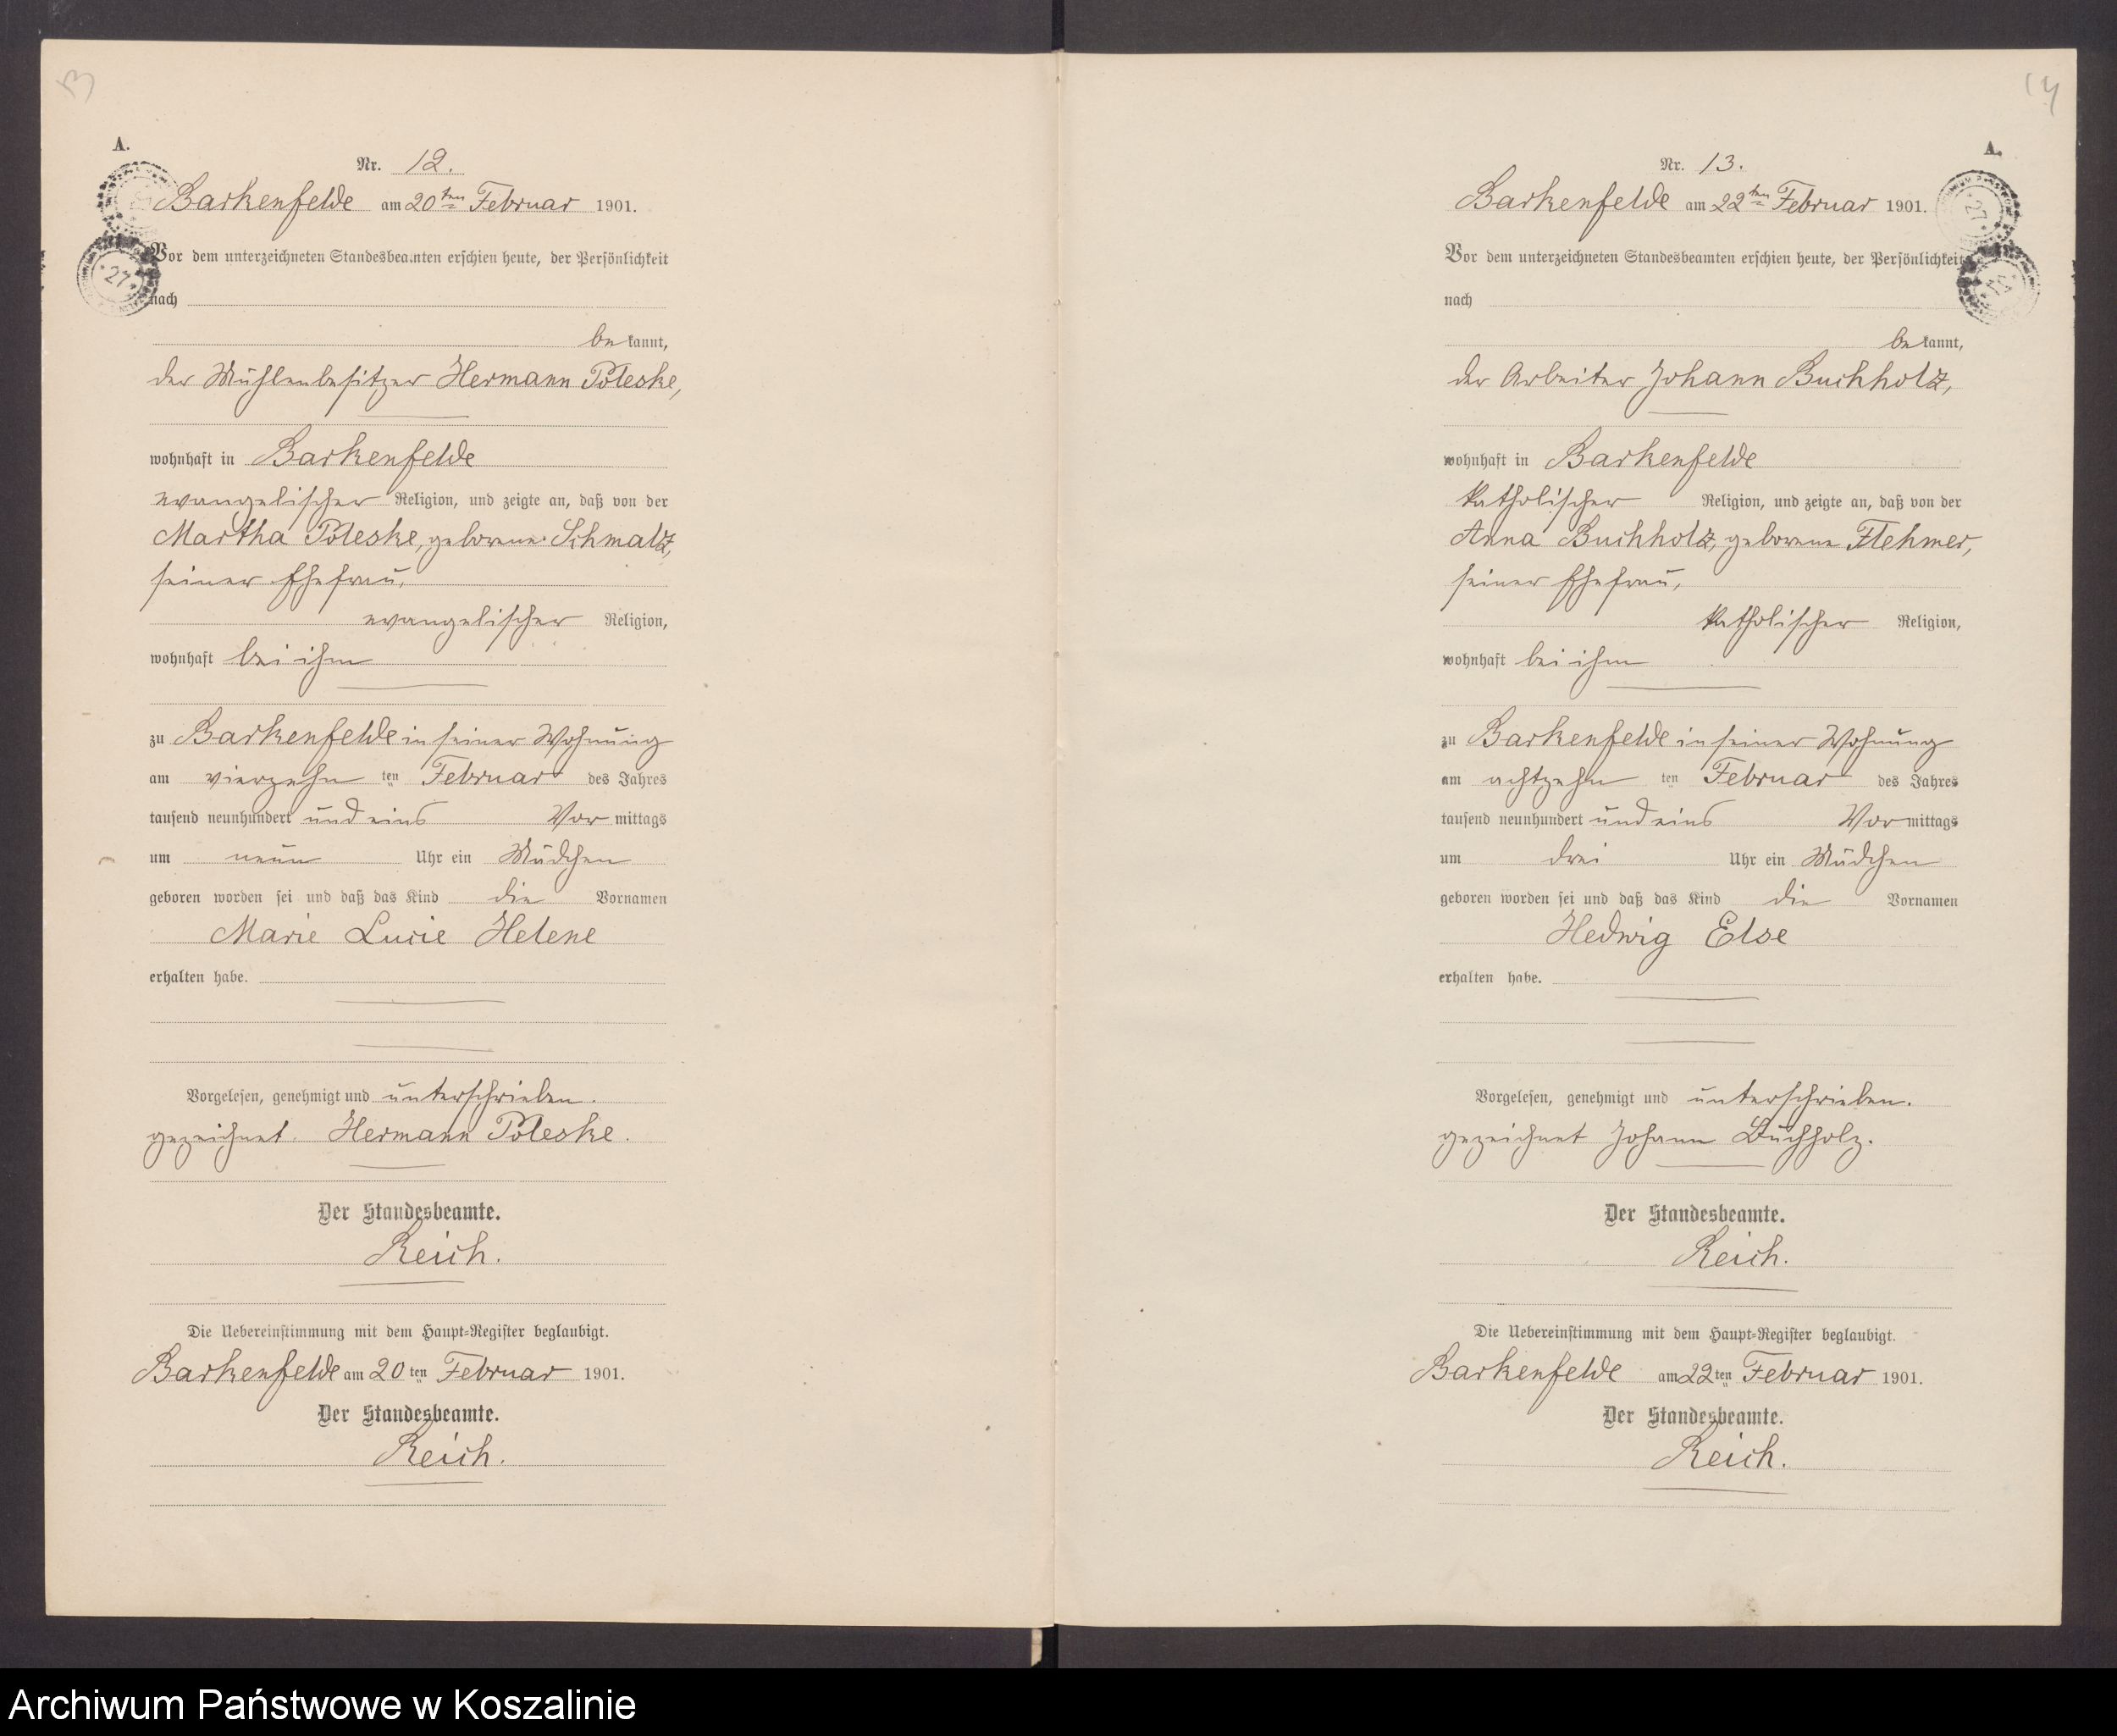 13
A.
Nr. 12.
Barkenfelde am 20ten Februar 1901.
Vor dem unterzeichneten Standesbeamten erschien heute, der Persönlichkeit
nach
bekannt,
der Mühlenbesitzer Hermann Poleske,
wohnhaft in Barkenfelde
evangelischer Religion, und zeigte an, daß von der
Martha Poleske, geborene Schmalz,
seiner Ehefrau,
evangelischer Religion,
wohnhaft bei ihm
zu Barkenfelde in seiner Wohnung
am vierzehn ten Februar des Jahres
tausend neunhundert und eins Vormittags
um neun Uhr ein Mädchen
geboren worden sei und daß das Kind die Vornamen
Marie Lucie Helene
erhalten habe.
Vorgelesen, genehmigt und unterschrieben.
gezeichnet Hermann Poleske.
Der Standesbeamte.
Reich.
Die Uebereinstimmung mit dem Haupt-Register beglaubigt.
Barkenfelde am 20ten Februar 1901.
Der Standesbeamte.
Reich.
27
14
A.
Nr. 13.
Barkenfelde am 22ten Februar 1901.
Vor dem unterzeichneten Standesbeamten erschien heute, der Persönlichkeit
nach
bekannt,
der Arbeiter Johann Buchholz,
wohnhaft in Barkenfelde
katholischer Religion, und zeigte an, daß von der
Anna Buchholz, geborene Flehmer,
seiner Ehefrau,
katholischer Religion,
wohnhaft bei ihm
zu Barkenfelde in seiner Wohnung
am achtzehn ten Februar des Jahres
tausend neunhundert und eins Vormittags
um drei Uhr ein Mädchen
geboren worden sei und daß das Kind die Vornamen
Hedwig Else
erhalten habe.
Vorgelesen, genehmigt und unterschrieben.
gezeichnet Johann Buchholz.
Der Standesbeamte.
Reich.
Die Uebereinstimmung mit dem Haupt-Register beglaubigt.
Barkenfelde am 22ten Februar 1901.
Der Standesbeamte.
Reich.
27
Archiwum Państwowe w Koszalinie